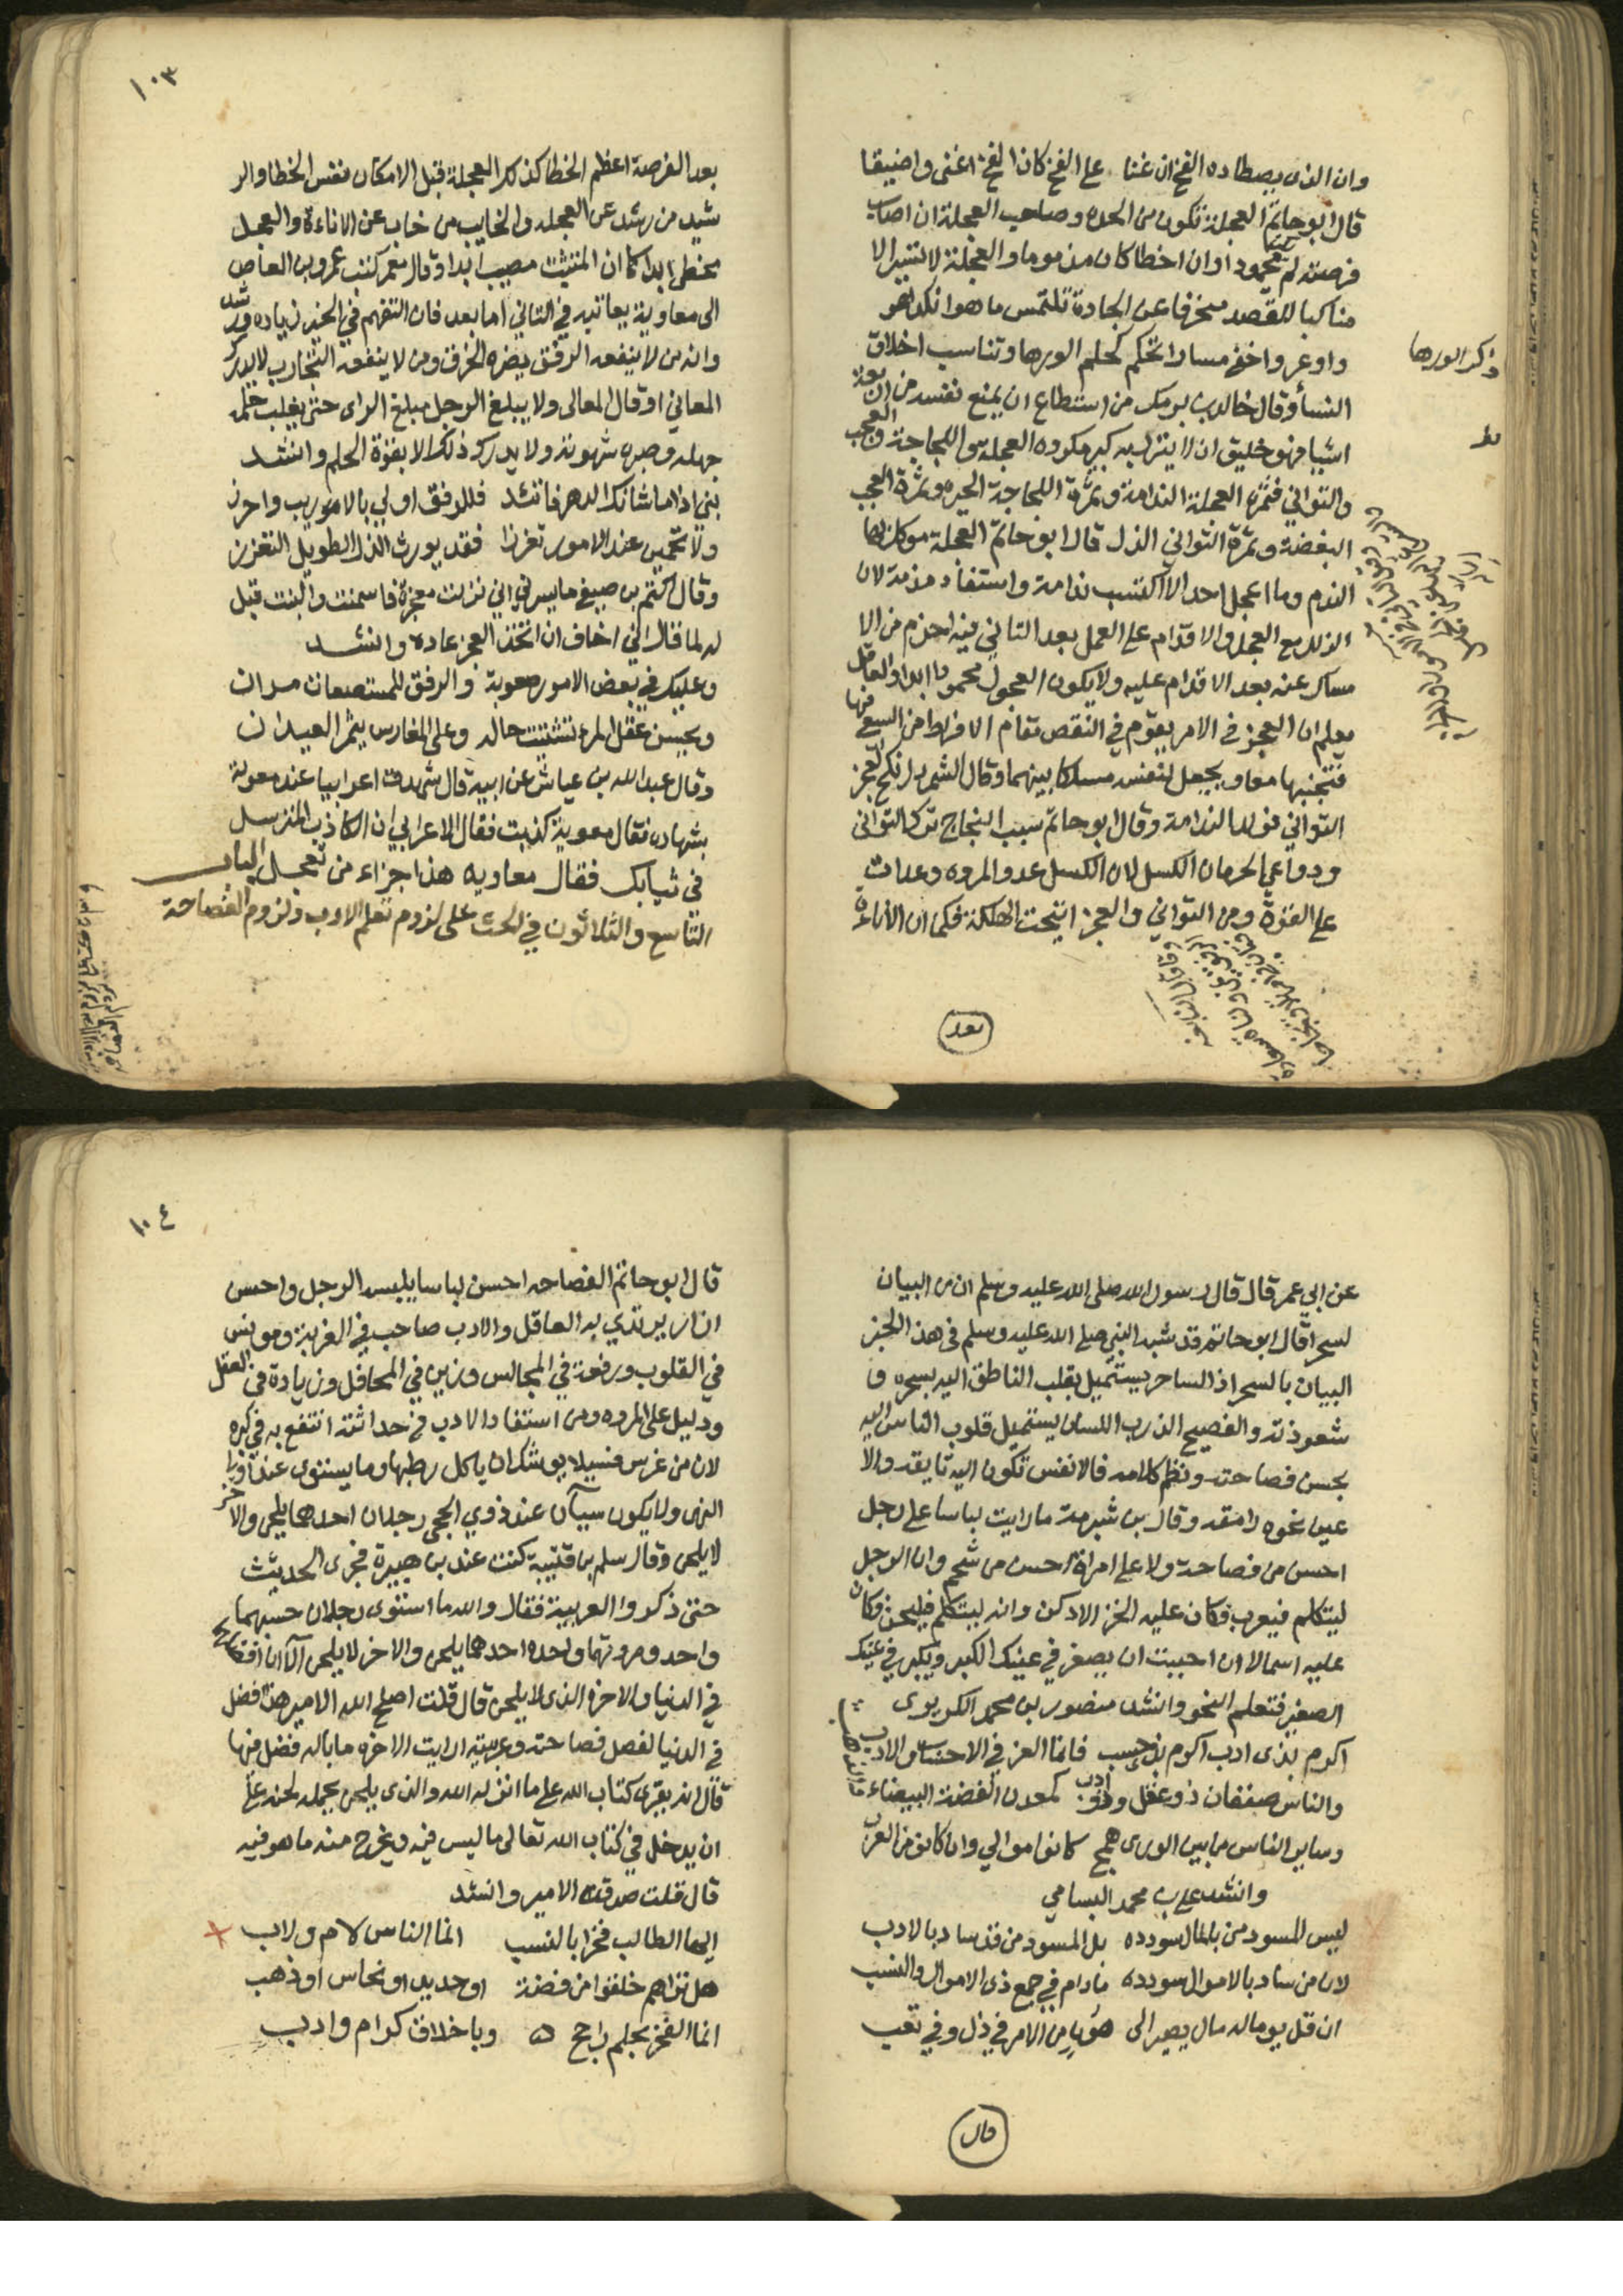 وان الذي يصطاده الفخ ان عتا على الفخ كان الفخ اعتى واضيقا
قال ابو حاتم العجلة تكون من الحدة وصاحب العجلة ان اصاب
فرصته لم يكن محمودا وان اخطا كان مذموما والعجلة لا تسير الا
مناكبا للقصد منحرفا عن الجادة تلتمس ما هو انكد وهو
واوعر واخفي مسارا تحكم كحلم الورها وتناسب اخلاق
النسأ وقال خالد بن برمك من استطاع ان يمنع نفسه من اربعة
اشيا فهو خليق ان لا ينزل به كبير مكروه العجلة واللجاجة والعجب
والتواني فثمرة العجلة الندامة وثمرة اللجاجة الحيرة وثمرة العجب
البغضة وثمرة التواني الذل قال ابو حاتم العجلة موكل بها
الندم وما اعجل احد الا اكتسب ندامة واستفاد مذمة لان
الزلل مع العجل والاقدام على العمل بعد التاني فيه احزم من الا
مساك عنه بعد الاقدام عليه ولا يكون العجول محمودا ابدا والعاقل
يعلم ان العجز في الامر يقوم في النقص مقام الافراط من السعي فيها
فتجنبها معا ويجعل لنفسه مسلكا بينهما وقال الشمردل نكح العجز
التواني فولد الندامة وقال ابو حاتم سبب النجاح ترك التواني
ودواعي الحرمان الكسل لان الكسل عدو المروه وعذاب
على الفتوة ومن التواني والعجز انتجت الهلكة فكما ان الاناءة
ذكر الورها
بعد
١٠٣
بعد الفرصة اعظم الخطا كذلك العجلة قبل الامكان نفس الخطا والر
شيد من رشد عن العجله والخايب من خاب عن الاناءة والعجل
مخطئ ابدا كما ان المتثبت مصيب ابدا وقال معمر كتب عمرو بن العاص
الى معاوية يعاتبه في التاني اما بعد فان التفهم في الخير زياده ورشد
وانه من لا ينفعه الرفق يضره الخرق ومن لا ينفعه التجارب لا يدرك
المعاني او قال المعالى ولا يبلغ الرجل مبلغ الراى حتى يغلب حلمه
جهله وصبره شهوته ولا يدرك ذلك الا بقوة الحلم وانشد
بني اذا ما شانك الدهر فاتئد فللرفق اولي بالاموريب واحرز
ولا تحمين عند الامور تعززا فقد يورث الذل الطويل التعزز
وقال اكثم بن صيفي ما يسرني اني نزلت معجزة فاسمنت والبنت قيل
له لما قال اني اخاف ان اتخذ العجز عادة وانشد
وعليك في بعض الامور صعوبة والرفق للمستصعبات مدان
وبحسن عقل المرء تثبت حاله وعلى المغارس يثمر العيدان
وقال عبد الله بن عياش عن ابيه قال شهدت اعرابيا عند معوية
بشهاده فقال معوية كذبت فقال الاعرابي ان الكاذب المتزمل
في ثيابك فقال معاويه هذا جزاء من تعجل الباب
التاسع والثلاثون في الحث على لزوم تعلم الادب ولزوم الفصاحة
عن ابي عمر قال قال رسول الله صلى الله عليه وسلم ان من البيان
لسحرا قال ابو حاتم قد شبه النبي صلى الله عليه وسلم في هذا الخبر
البيان بالسحر اذ الساحر يستميل بقلب الناظر اليه بسحره و
شعوذته والفصيح الذرب اللسان يستميل قلوب الناس اليه
بحسن فصاحته ونظم كلامه فالانفس تكون اليه تايقه والا
عين نحوه رامقه وقال بن شبرمة ما رايت لباسا على رجل
احسن من فصاحة ولا على امراة احسن من شحم وان الرجل
ليتكلم فيعرب فكان عليه الخز الادكن وانه ليتكلم فيلحن فكان
عليه اسمالا ان احببت ان يصغر في عينك الكبير ويكبر في عينك
الصغير فتعلم النحو وانشد منصور بن محمد الكريزى
اكرم بذى ادب اكرم بذى حسب فانما العز في الاحساب والادب
والناس صنفان ذو عقل وذو ادب كمعدن الفضة البيضاء
وساير الناس من بين الورى همج كانوا موالي وان كانو من العرب
وانشد علي بن محمد البسامي
ليس المسود من بالمال سودده بل المسود من قد ساد بالادب
لان من ساد بالاموال سودده مادام في جمع ذى الاموال والنشب
ان قل يوما له مال يصير الى هون من الامر في ذل وفي تعب
قال
١٠٤
قال ابو حاتم الفصاحه احسن لباسا يلبسه الرجل واحسن
ازار يرتدي به العاقل والادب صاحب في الغربة ومونس
في القلوب ورفعة في المجالس وزين في المحافل وزيادة في العقل
ودليل على المروه ومن استفاد الادب في حداثته انتفع به في كبره
لان من غرس فسيلا يوشك ان ياكل رطبها وما يستوى عند اولي
النهى ولا يكون سيان عند ذوي الحجى رجلان احدهما يلحن والاخر
لا يلحن وقال سلم بن قتيبة كنت عند بن هبيرة فجرى الحديث
حتى ذكروا العربية فقال والله ما استوى رجلان حسبهما
واحد ومروتهما واحده احدهما يلحن والاخر لا يلحن الا ان افضلهما
في الدنيا والاخرة الذى لا يلحن قال قلت اصلح الله الامير هذا افضل
في الدنيا لفضل فصاحته وعربيته ارايت الاخره ما باله فضل فيها
قال انه يقرى كتاب الله على ما انزله الله والذى يلحن يحمله لحنه على
ان يدخل في كتاب الله تعالى ما ليس فيه ويخرج منه ما هو فيه
قال قلت صدق الامير وانشد
ايها الطالب فخرا بالنسب انما الناس لام ولاب
هل تراهم خلقوا من فضة او حديد او نحاس او ذهب
انما الفخر بحلم راجح وباخلاق كرام وادب